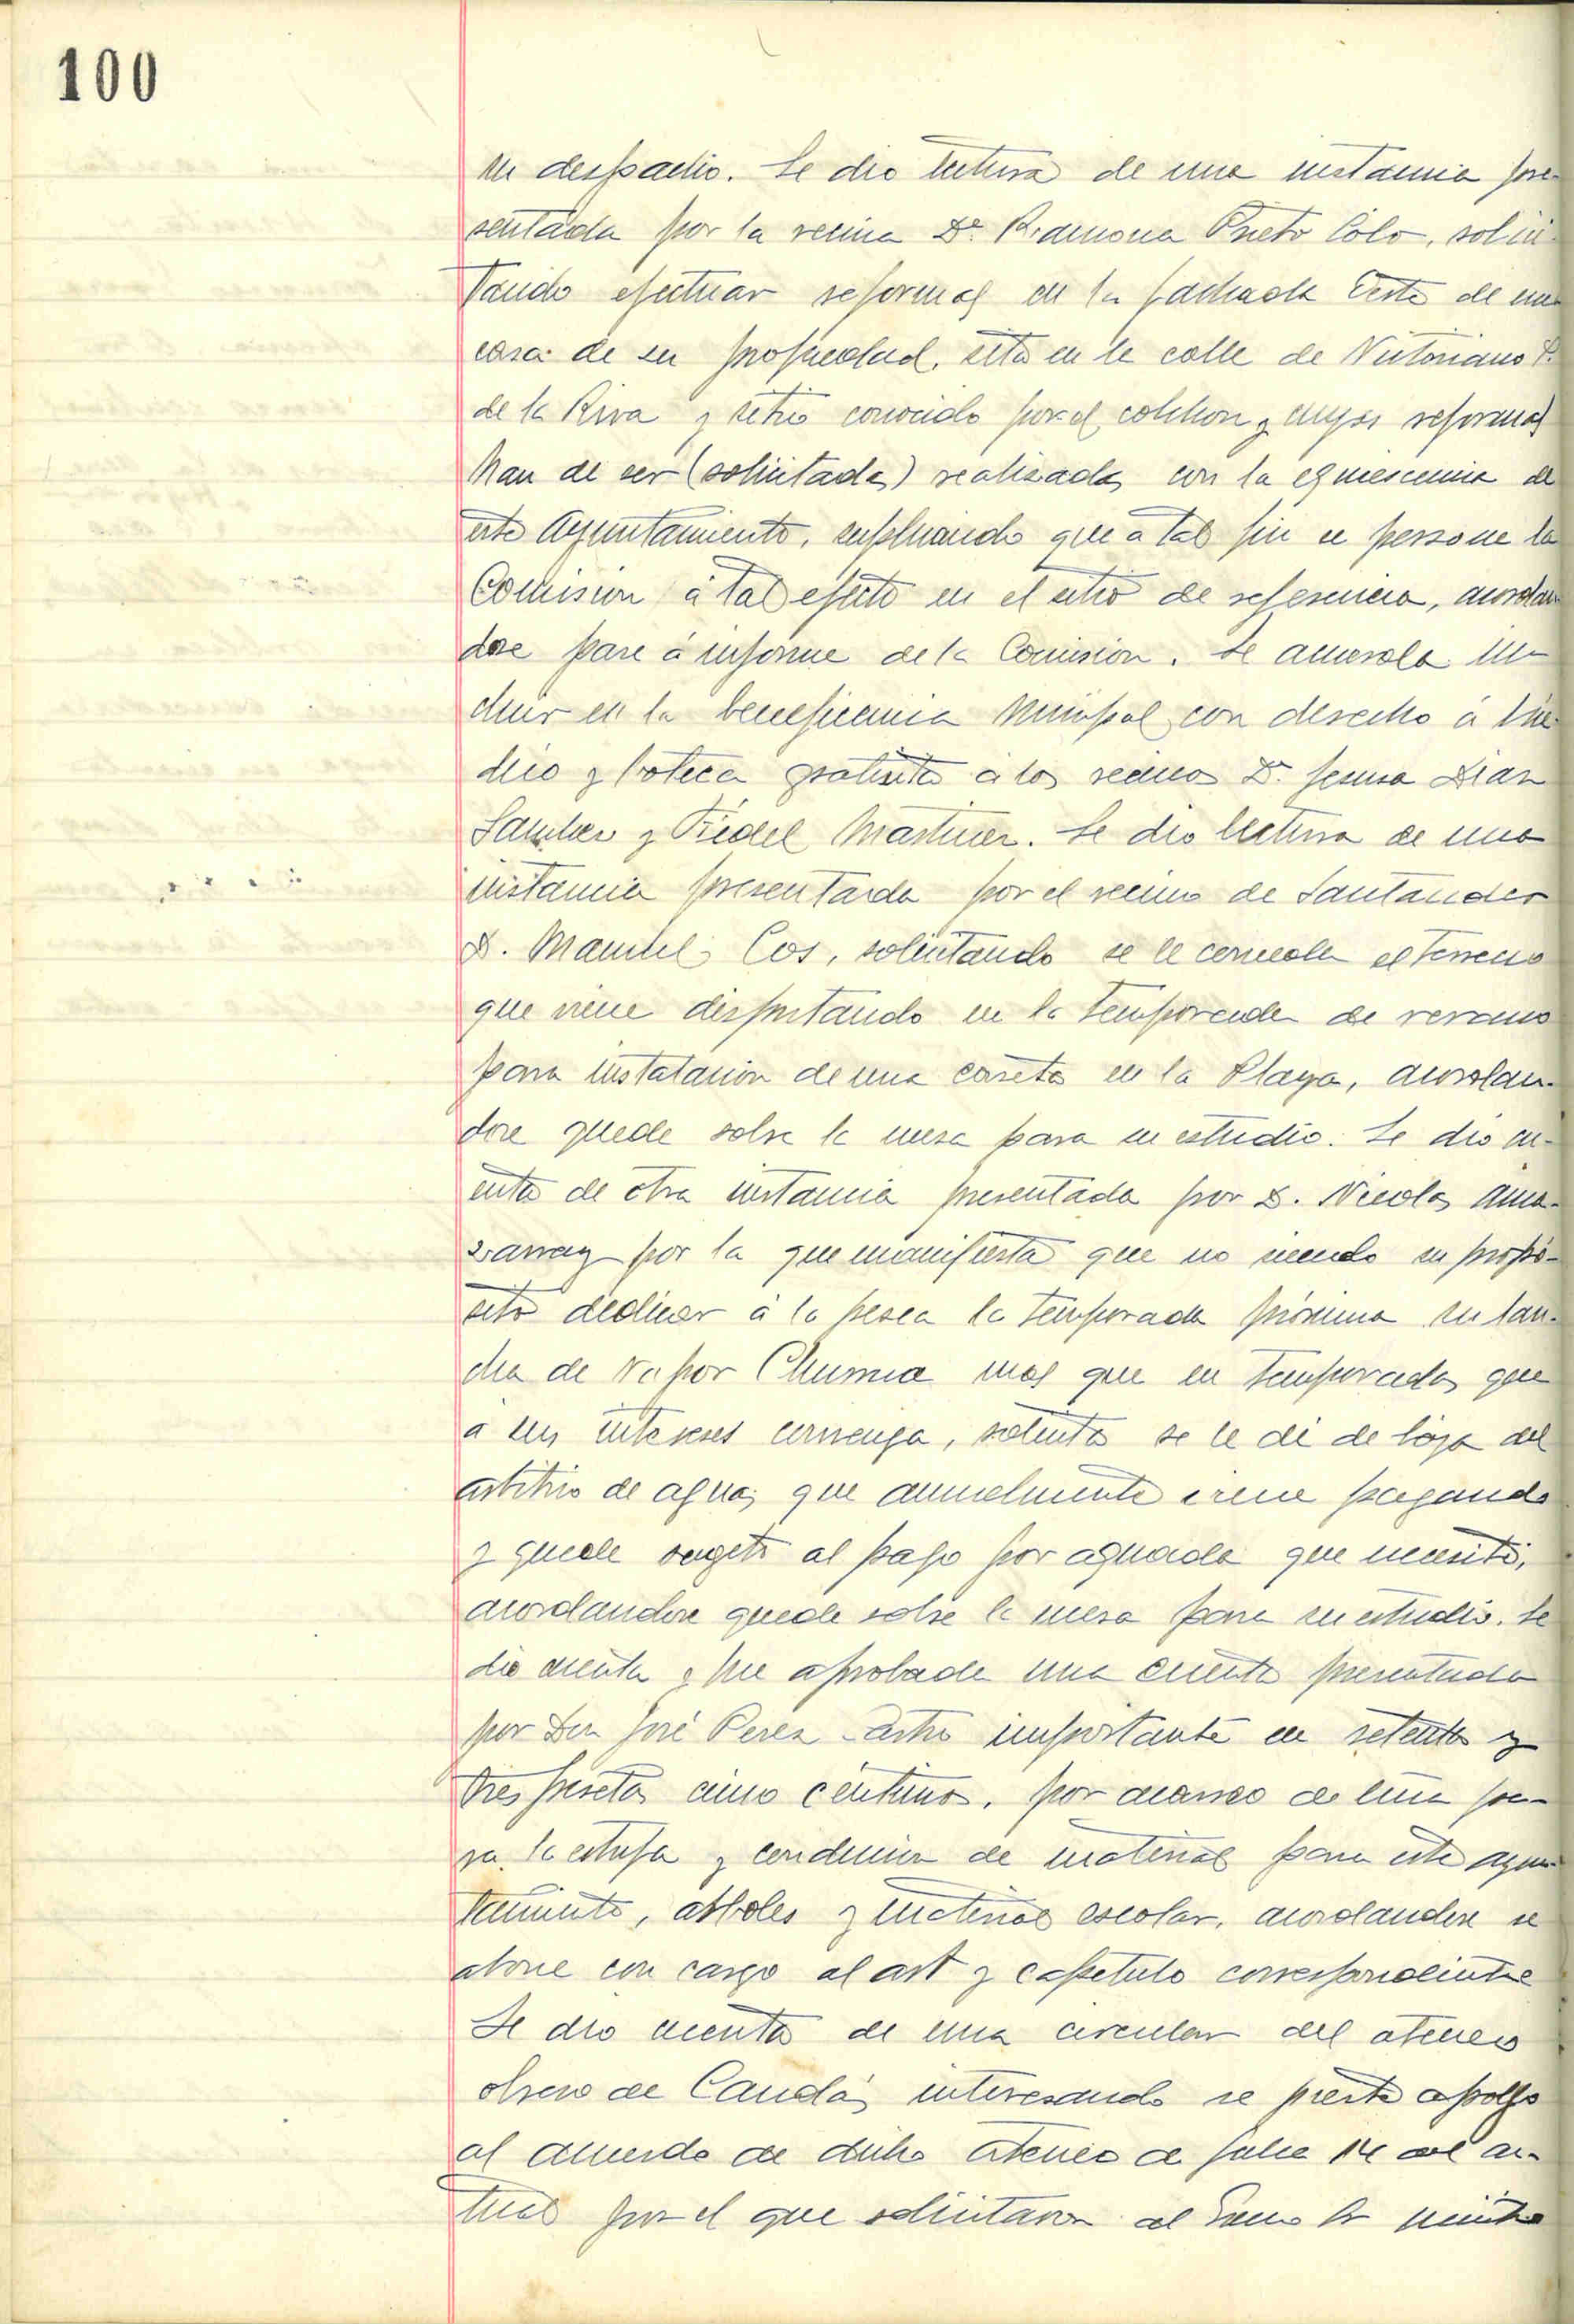 100
su despacho. Se dio lectura de una instancia pre-
sentada por la vecina Dª Ramona Prieto Colo, solici-
tando efectuar reformas en la fachada Este de una
casa de su propiedad, sita en la calle de Victoriano P.
de la Riva y sitio conocido por el colchon y cuyas reformas
han de ser (solicitadas) realizadas con la aquiescencia de
este Ayuntamiento, suplicando que a tal fin se persone la
Comision á tal efecto en el sitio de referencia, acordan
dose pase á informe de la Comision. Se acuerda in-
cluir en la beneficencia Municipal con derecho á Mé-
dico y botica gratuita á los vecinos Dª Jesusa Diaz
Sanchez y Fidel Martinez. Se dio lectura de una
instancia presentada por el vecino de Santander
D. Manuel Cos, solicitando se le conceda el terreno
que viene disfrutando en la temporada de verano
para instalacion de una caseta en la Playa, acordan-
dose quede sobre la mesa para su estudio. Se dio cu-
enta de otra instancia presentada por D. Nicolas Ama-
zarray por la que manifiesta que no siendo su propó-
sito dedicar á la pesca la temporada próxima su lan-
cha de vapor Chumia mas que en temporadas que
á sus intereses convenga, solicita se le dé de baja del
arbitrio de aguas que anualmente viene pagando
y quede sugeto al pago por aguada que necesite,
acordandose quede sobre la mesa para su estudio. Se
dio cuenta y fue aprobada una cuenta presentada
por Don José Perez Castro importante en setenta y
tres pesetas cinco céntimos, por acarreo de leña pa-
ra la estufa y conduccion de material para este ayun
tamiento, arboles y material escolar, acordandose se
abone con cargo al art y capitulo correspondiente
Se dio cuenta de una circular del ateneo
obrero de Candás interesando se preste apoyo
al acuerdo de dicho Ateneo de fecha 14 del ac-
tual por el que solicitaron al Exmo Sr Ministro